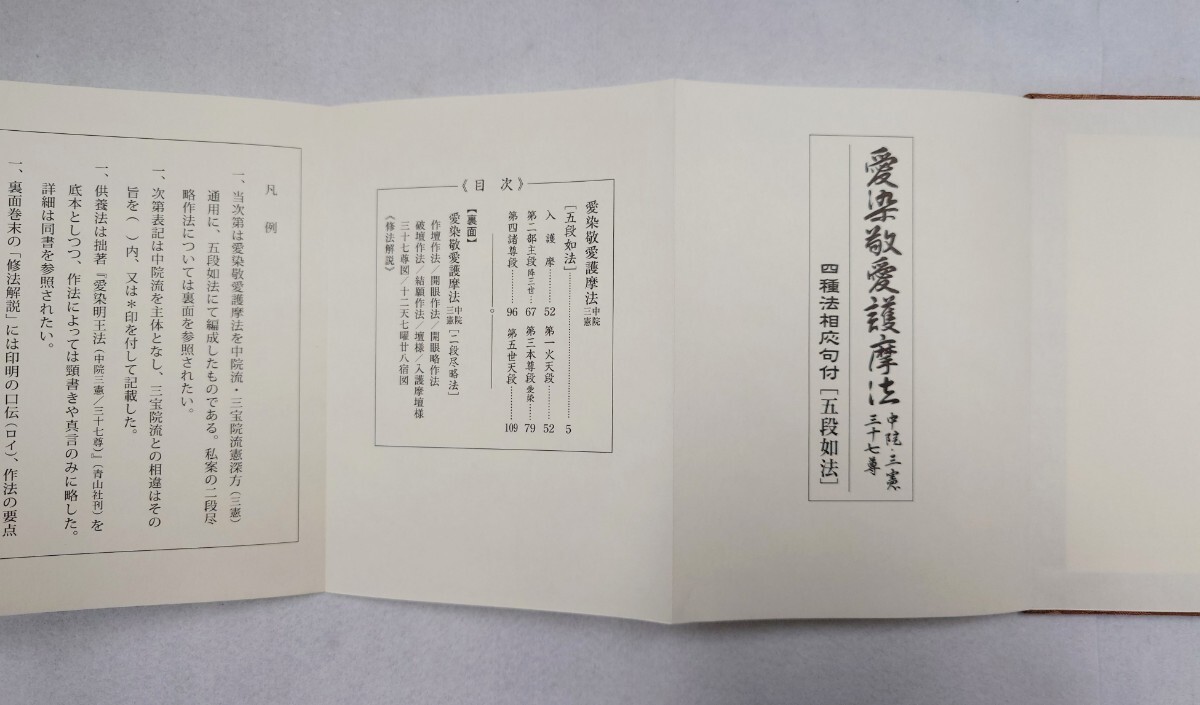 愛染敬愛護摩法 中院・三憲
三十七尊
四種法相応句付［五段如法］
《目次》
愛染敬愛護摩法 中院
三憲
［五段如法］………5
入護摩………52 第一火天段………52
第二部主段 降三世………67 第三本尊段 愛染………79
第四諸尊段………96 第五世天段………109
【裏面】
愛染敬愛護摩法 中院
三憲［二段尽略法］
作壇作法／開眼作法／開眼略作法
破壇作法／結願作法／壇様／入護摩壇様
三十七尊図／十二天七曜廿八宿図
《修法解説》
凡例
一、当次第は愛染敬愛護摩法を中院流・三宝院流憲深方（三憲）
通用に、五段如法にて編成したものである。私案の二段尽
略作法については裏面を参照されたい。
一、次第表記は中院流を主体となし、三宝院流との相違はその
旨を（ ）内、又は＊印を付して記載した。
一、供養法は拙著『愛染明王法（中院三憲／三十七尊）』（青山社刊）を
底本としつつ、作法によっては頸書きや真言のみに略した。
詳細は同書を参照されたい。
一、裏面巻末の「修法解説」には印明の口伝（ロイ）、作法の要点